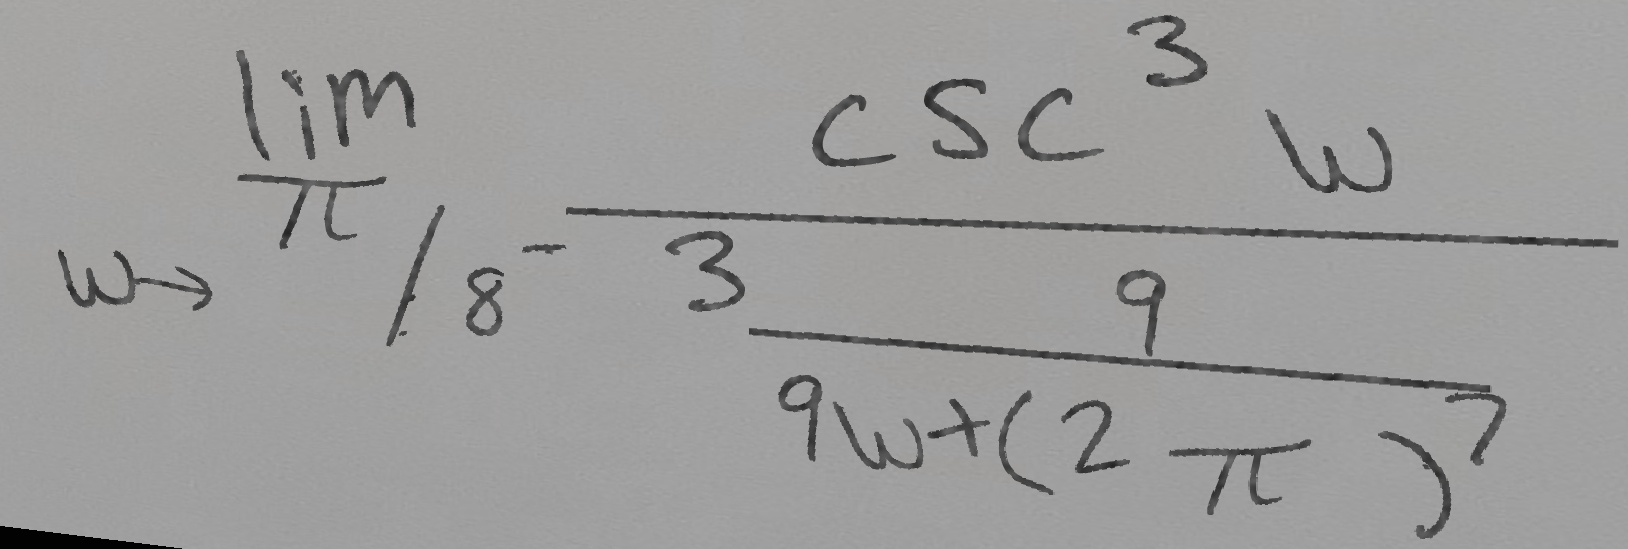 \lim_{w \to \pi/8^-} \frac{\csc^3 w}{3 \frac{9}{9w+(2\pi)^7}}